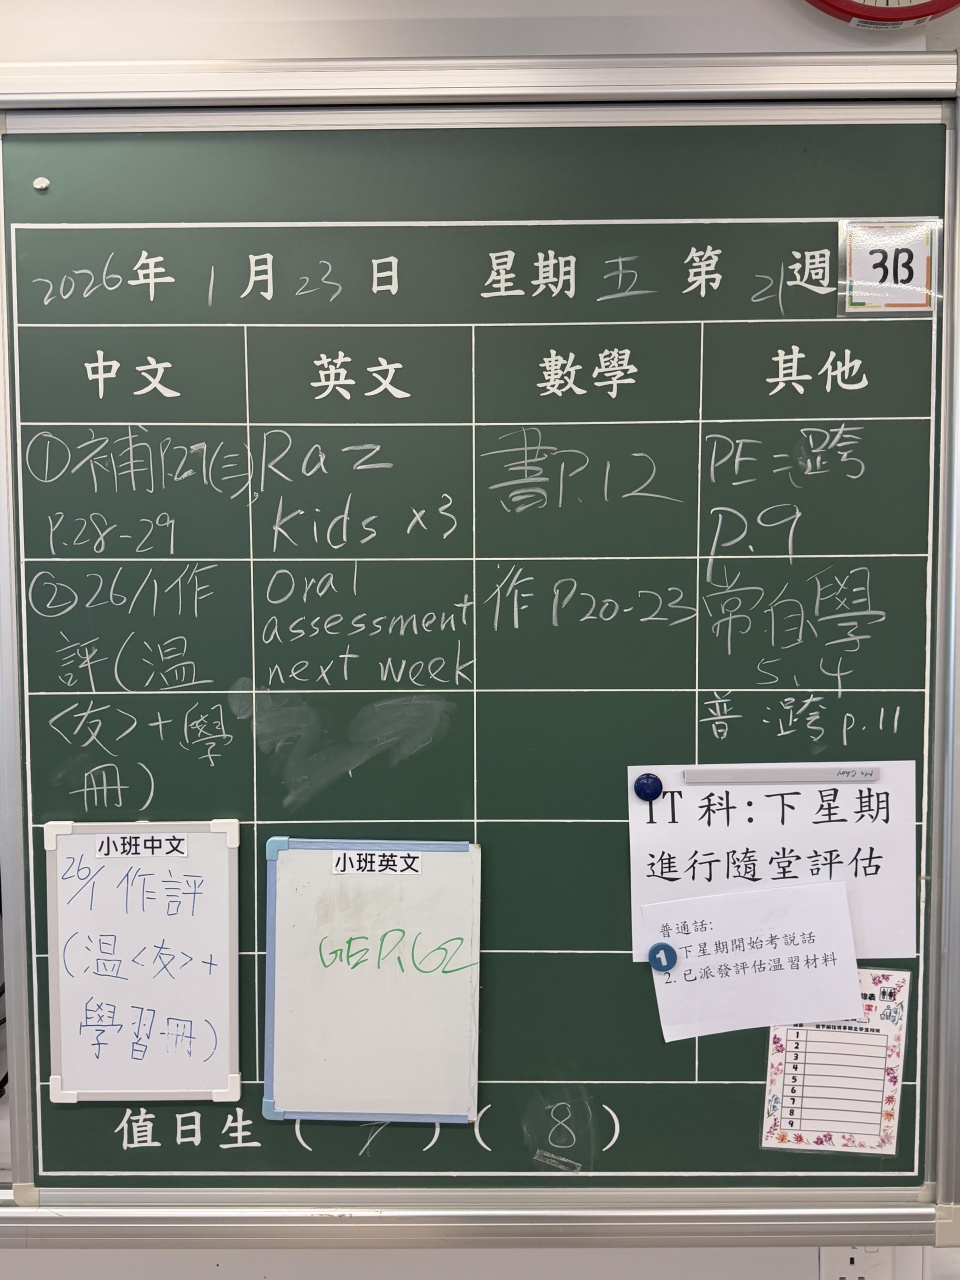 2026年 1月 23日 星期五 第21週 3B
中文 英文 數學 其他
①補P.27(三),
P.28-29
②26/1作
評(溫
<友>+學
冊)
Raz
Kids ×3
Oral
assessment
next week
書P.12
作P20-23
PE:跨
P.9
常自學
5.4
普:跨 p.11
Ms Choy
IT科:下星期
進行隨堂評估
普通話:
1 下星期開始考說話
2. 已派發評估溫習材料
小班中文
26/1 作評
(溫<友>+
學習冊)
小班英文
GE P.62
1
2
3
4
5
6
7
8
9
值日生 ( 7 ) ( 8 )